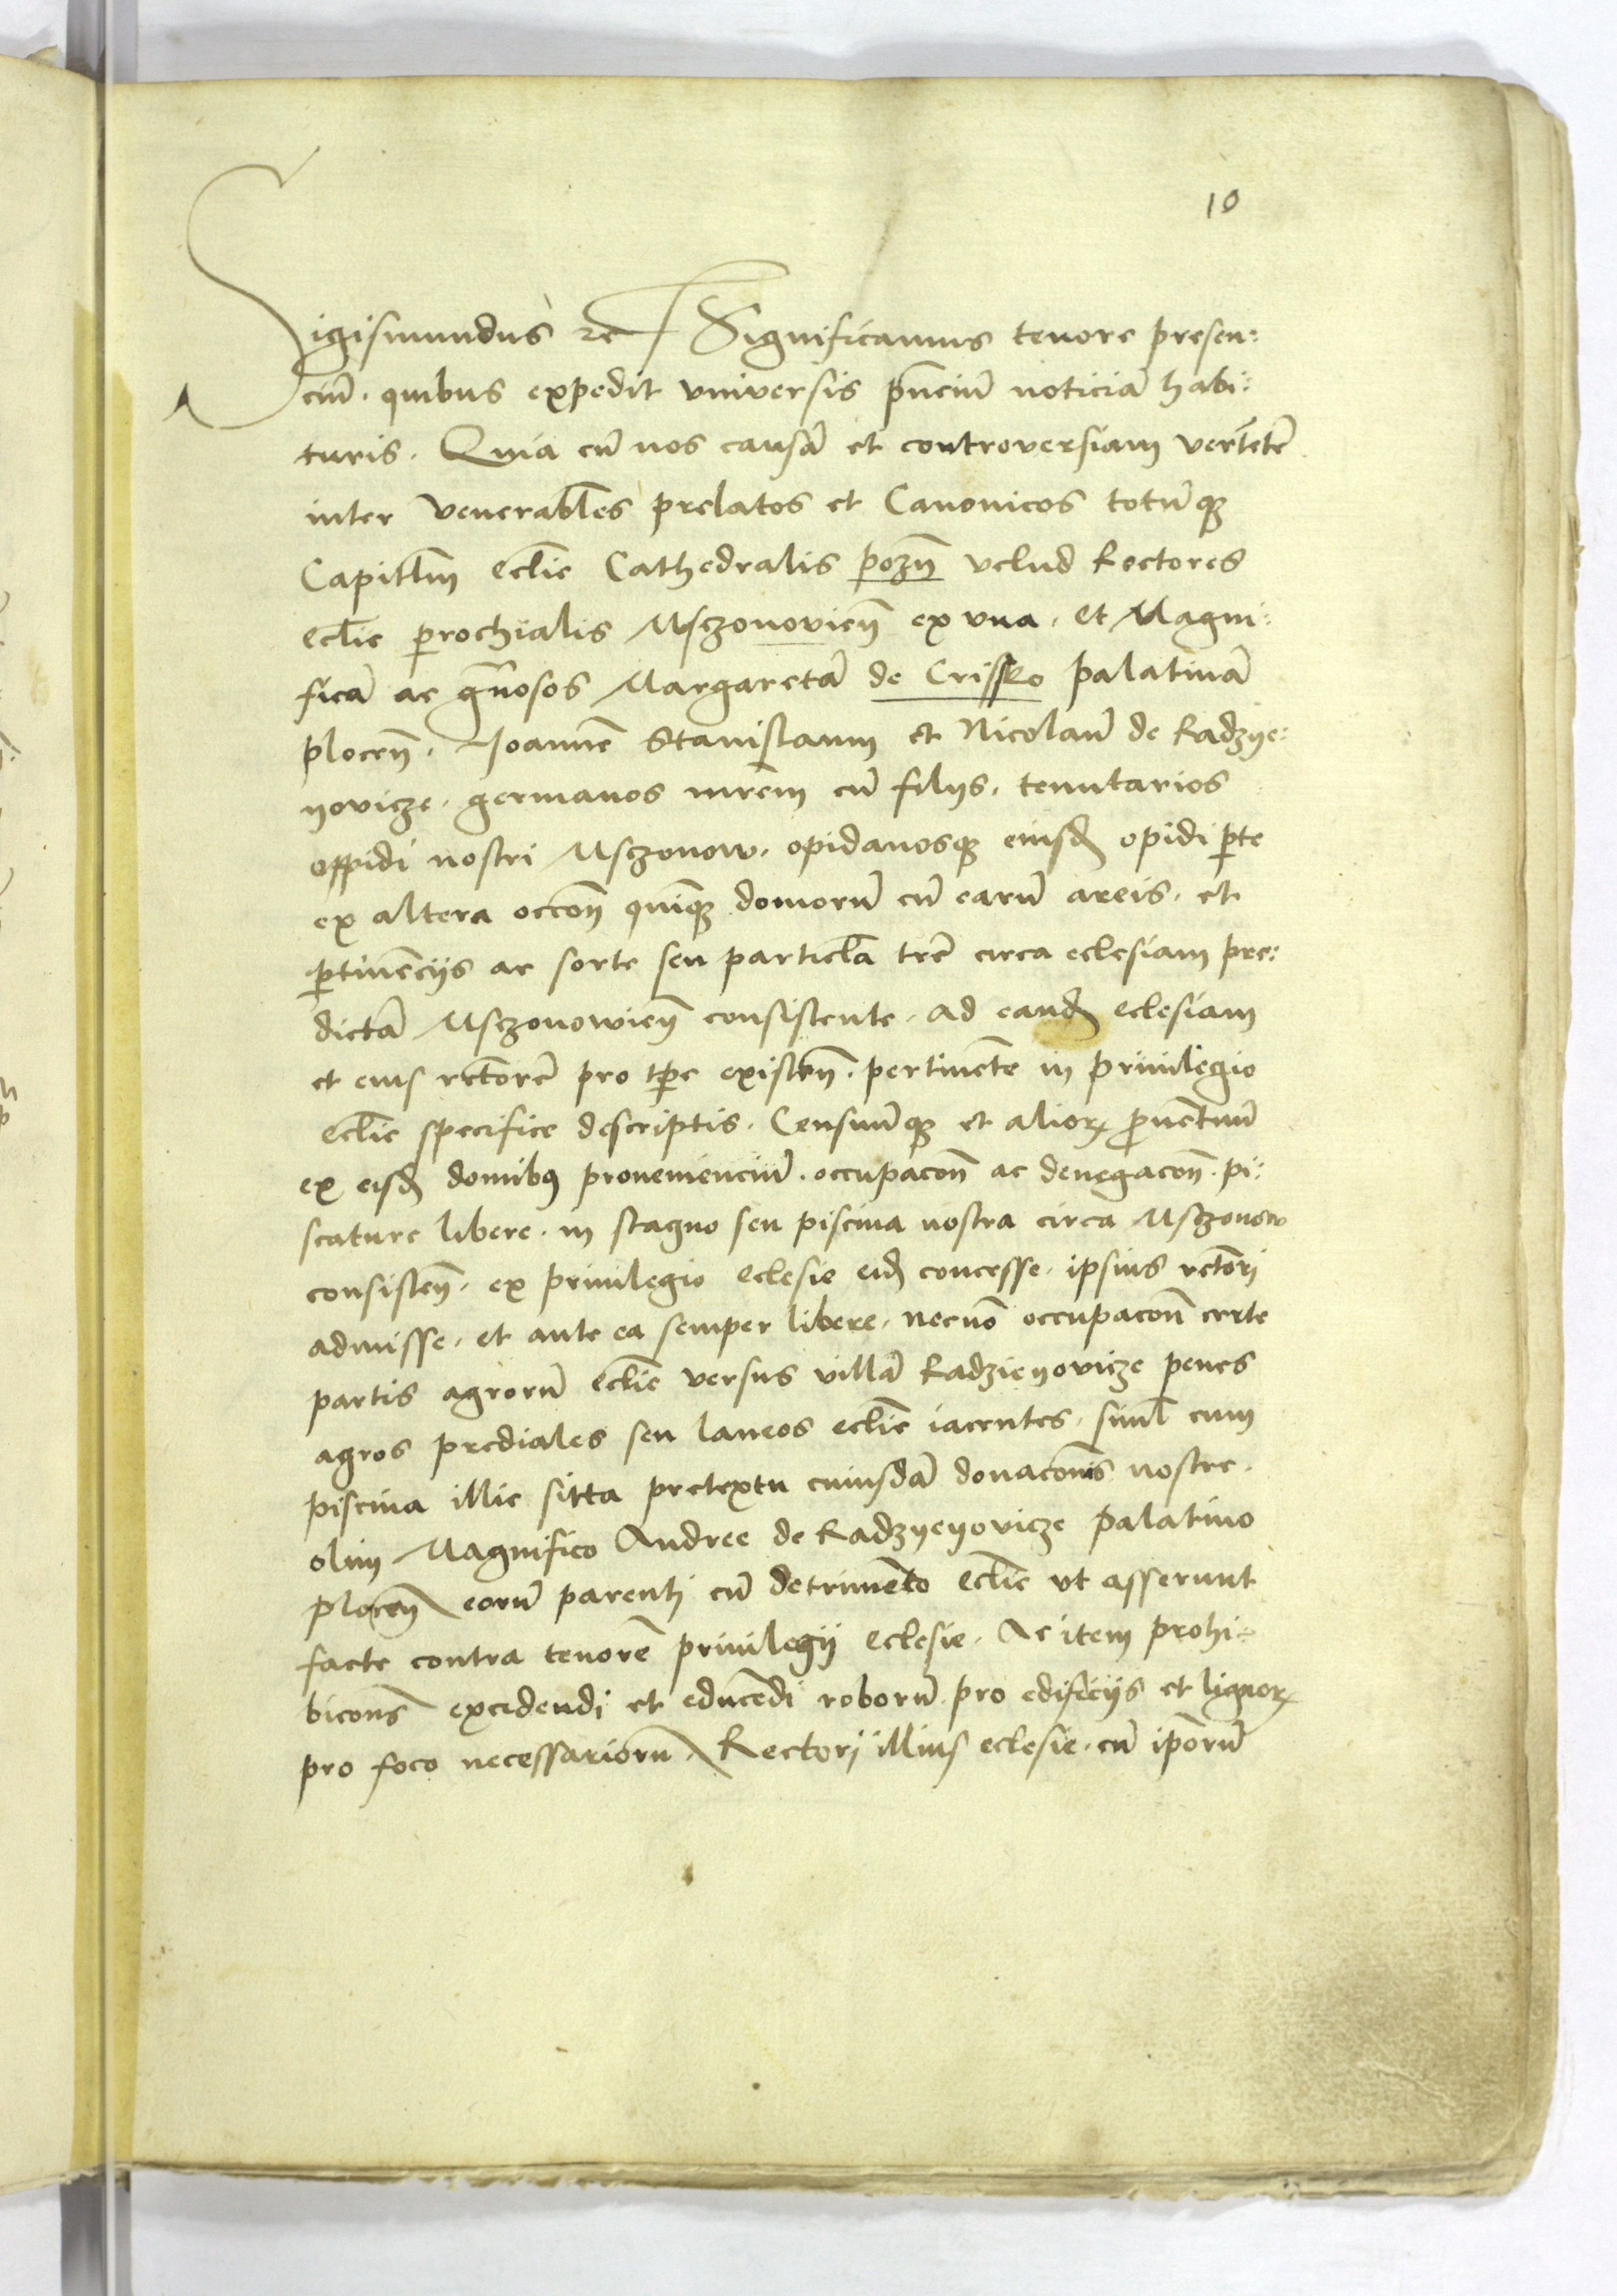 10
Sigismundus &c Significamus tenore presen:
ciū. quibus expedit vniversis pn̄ciū noticiā habi:
turis. Quia cū nos causā et controversiam vertētē
inter venerabl̄es prelatos et Canonicos totūqȝ
Capitl̄m ecl̄ie Cathedralis pozn̄ velud Rectores
ecl̄ie prochialis Msczonovien̄ ex vna. et Magni:
ficā ac gn̄osos Margaretā de Crissko palatinā
plocen̄. Joannē Stanislaum et Nicolaū de Radzye:
yovicze. germanos mr̄em cū filijs. tenutarios
oppidi nostri Msczonow. opidanosqȝ eiusd̄ opidi p̄te
ex altera occōn̄ quīqȝ domorū cū earū areis. et
p̄tinēcijs ac sorte seu particl̄a tr̄e circa eclesiam pre:
dictā Msczonowien̄ consistente. ad eand̄ eclesiam
et eius rectorē pro tp̄e existēn̄. pertinēte in priuilegio
ecl̄ie specifice descriptis. Censuūqȝ et alioꝝ ꝓuentuū
ex eisd̄ domibꝯ proveniencīū. occupacōn̄ ac denegacōn̄. pi:
scature libere. in stagno seu piscina nostra circa Msczonow
consisten̄. ex priuilegio eclesie eid̄ concesse. ipsius rectōri
admisse. et ante ea semper libere. necnō occupacōn̄ certe
partis agrorū ecl̄ie versus villā Radzieyovicze penes
agros prediales seu laneos ecl̄ie iacentes. siml̄ cum
piscina illic sitta pretextu cuiusdā donacōnis nostre.
olim Magnifico Andree de Radzyeyovicze palatino
plocen̄ eorū parenti cū detrimēto ecl̄ie vt asserunt
facte contra tenorē priuilegij eclesie. Ac item prohi:
bicōns̄ excidendi et educēdi roborū pro edificijs et lignoꝝ
pro foco necessariorū. Rectori illius eclesie. cū ip̄orū